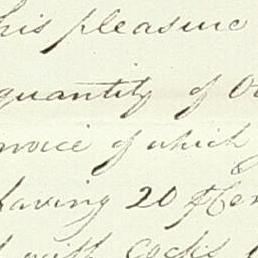 his pleasure
quantity of
nvoice of which
having 20 PCen
with Cocks